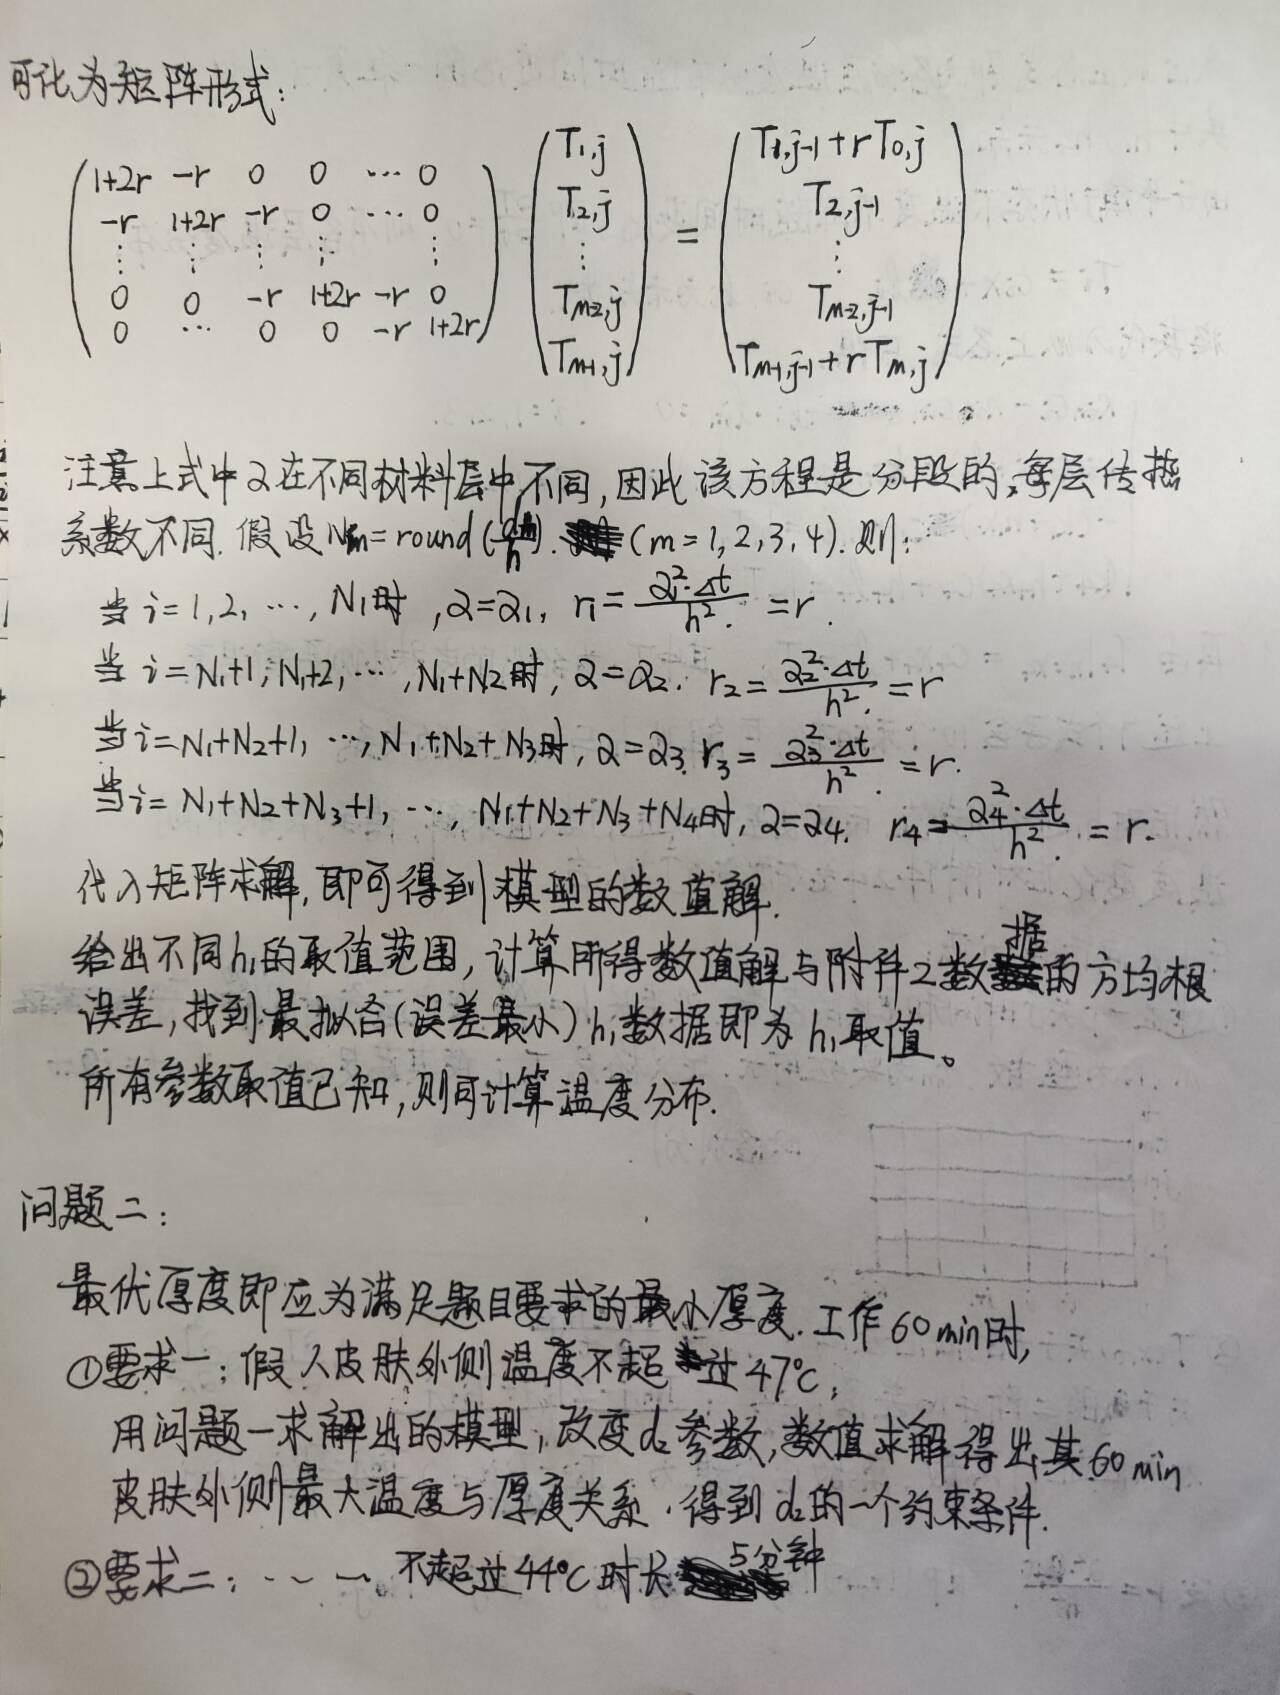 可化为矩阵形式:
( 1+2r -r 0 0 … 0 ) ( T1,j ) = ( T1,j-1 + rT0,j )
( -r 1+2r -r 0 … 0 ) ( T2,j ) ( T2,j-1 )
( ⋮ ⋮ ⋮ ⋮ ⋮ ) ( ⋮ ) ( ⋮ )
( 0 0 -r 1+2r -r 0 ) ( Tm-2,j ) ( Tm-2,j-1 )
( 0 … 0 0 -r 1+2r ) ( Tm-1,j ) ( Tm-1,j-1 + rTm,j )
注意上式中α在不同材料层中不同,因此该方程是分段的,每层传热
系数不同. 假设Nm = round(dm/h). (m=1,2,3,4). 则:
当 i=1,2,…,N1时, α=α1, r1 = α1²·Δt/h². = r.
当 i=N1+1, N1+2,…,N1+N2时, α=α2. r2 = α2²·Δt/h². = r
当 i=N1+N2+1, …, N1+N2+N3时, α=α3. r3 = α3²·Δt/h². = r.
当 i=N1+N2+N3+1, …, N1+N2+N3+N4时, α=α4. r4 = α4²·Δt/h². = r.
代入矩阵求解,即可得到模型的数值解.
给出不同h1的取值范围,计算所得数值解与附件2数据的方均根
误差,找到最拟合(误差最小)h1数据即为h1取值。
所有参数取值已知,则可计算温度分布.
问题二:
最优厚度即应为满足题目要求的最小厚度.工作60min时,
①要求一:假人皮肤外侧温度不超过47℃;
用问题一求解出的模型,改变d2参数,数值求解得出其60min
皮肤外侧最大温度与厚度关系.得到d2的一个约束条件.
②要求二:~ ~ ~ 不超过44℃时长5分钟